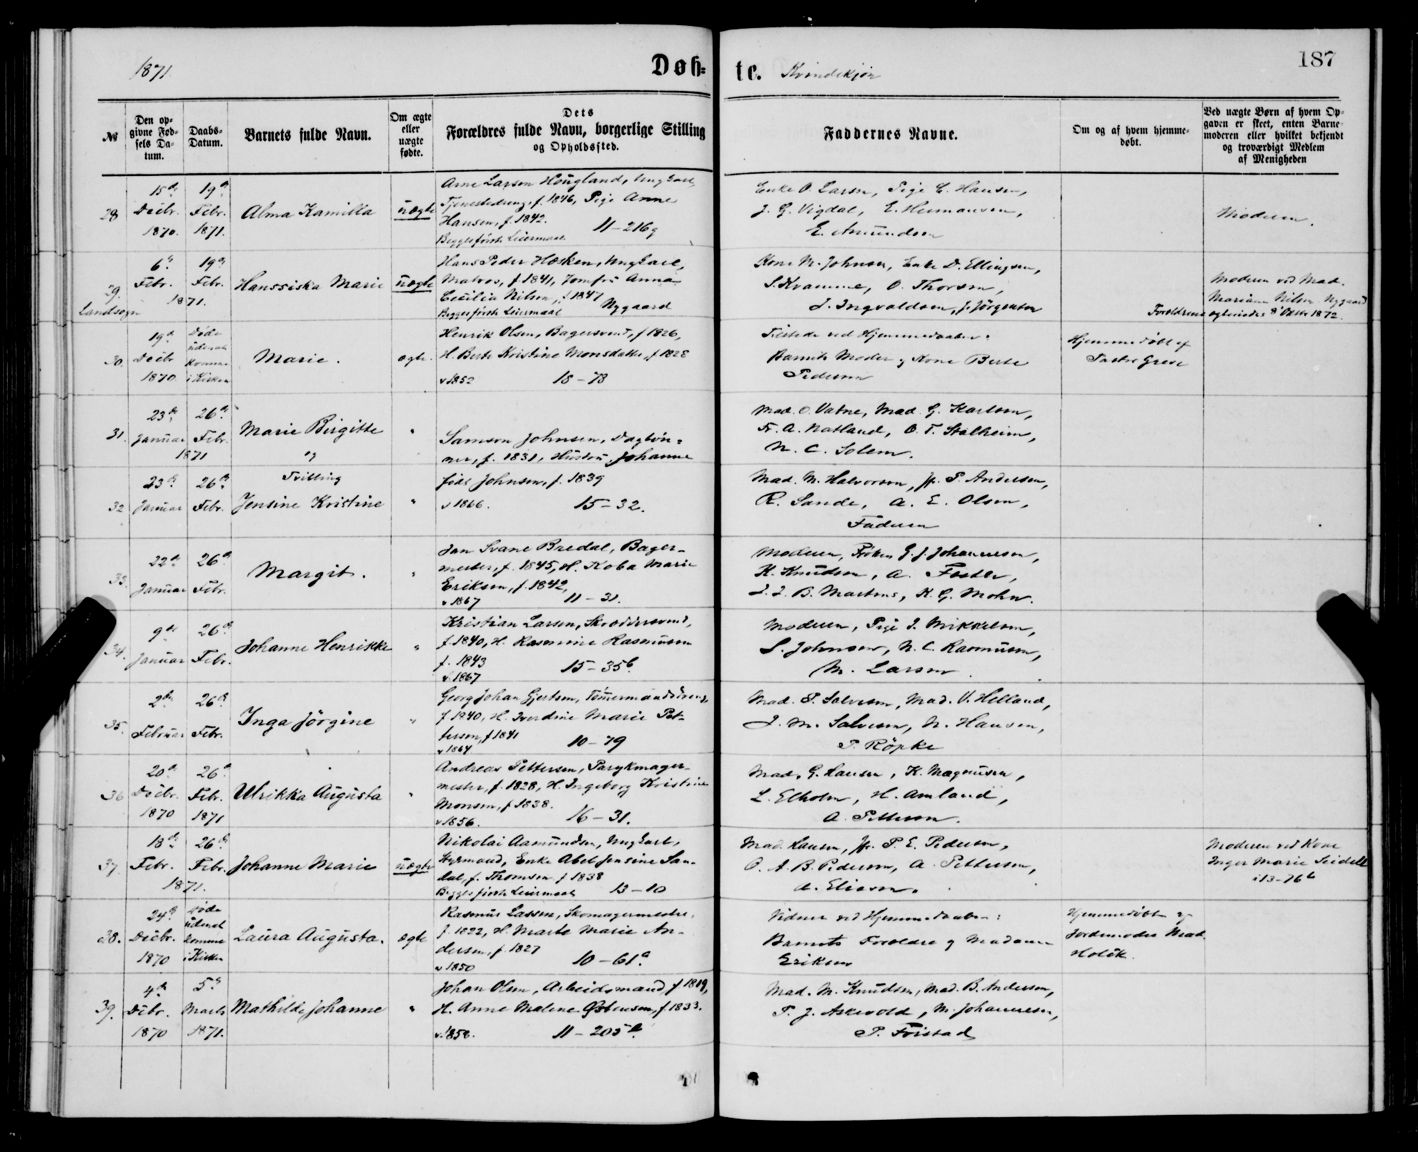 1871.
Døb=
te. Kvindekjøn
187
№
Den op-
givne Fød-
sels Da-
tum.
Daabs-
Datum.
Barnets fulde Navn.
Om ægte
eller
uægte
fødte.
Dets
Forældres fulde Navn, borgerlige Stilling
og Opholdssted.
Faddernes Navne.
Om og af hvem hjemme-
døbt.
Ved uægte Børn af hvem Op-
gaven er skeet, enten Barne-
moderen eller hvilket bekjendt
og troværdigt Medlem
af Menigheden
28.
15de
Decbr.
1870.
19de
Febr.
1871.
Alma Kamilla
uægte
Arne Larsen Hougland, Ungkarl,
f. 1846, Pige Anne
Hansen, f. 1842.
Begges første Leiermaal
11-216g
Enke O. Larsen, Pige E. Hansen,
J. G. Vigdal, E. Hermansen,
E. Amundsen
Moderen.
29.
Landsogn
6te
Febr.
19de
Febr.
1871.
Hanssiska Marie
uægte
Hans Peder Ungkarl,
Matros, f. 1841, Jomfru Anna
Cecilia Nilsen, f. 1847
Begges første Leiermaal
Nygaard
Kone N. Johnsen, Enke D. Ellingsen,
S. Kvamme, O. Thorsen,
S. Ingvaldsen, J. Jørgensen
Moderen ved Mad.
Mariane Nilsen Nygaard
Forældrene 8 Oktbr 1872.
30.
19de
Decbr
1870
Døde
uden at
komme
i Kirken
Marie.
ægte
Henrik Olsen, Bagersvend, f 1826,
H. Berte Kristine Monsdatter, f 1828
v 1852
15-73
Tilstede ved Hjemmedaaben:
Barnets Moder og Kone Berte
Pedersen
Hjemmedøbt af
Pastor Greve
31.
23de
Januar
1871
26de
Febr.
Marie Birgitte
og
"
Samson Johnsen, Dagløn-
ner, f. 1831, Hustru Johanne
Mad. O. Vatne, Mad. G. Karlsen,
A. Natland, O. T. Stalheim,
N. C. Solem.
32
23de
Januar
26de
Febr.
Tvilling
Jensine Kristine
"
født Johnsen, f. 1839
v 1866.
15-32.
Mad. M. Halvorsen, Jfr. P. Andersen,
R. Sande, A. E. Olsen,
Faderen
33.
22de
Januar
26de
Febr.
Margit.
"
Jan Svane Bredal, Bager-
mester, f. 1845, H. Koba Marie
Eriksen, f. 1842,
v 1867
11-31.
Moderen, Frøken G. J. Johannesen,
K. Knudsen, A. Foster,
J. J. B. Martens, K. G. Mohn.
34.
9de
Januar
26de
Febr.
Johanne Henrikke
"
Kristian Larsen, Skræddersvend,
f. 1840, H. Rasmine Rasmussen
f. 1843
v. 1867
15-35b
Moderen, Pige J. Mikkelsen,
S. Johnsen, N. C. Rasmussen,
M. Larsen.
35.
2den
Februar
26de
Febr.
Inga Jörgine
"
Georg Johan Gjertsen, Tømmermandssvend,
f 1840, H. Iverdine Marie Pet-
tersen, f 1841
v 1864
10-79
Mad. S. Salvesen, Mad. V. Helland,
J. M. Salvesen, N. Hansen,
P. Röpke
36
20de
Decbr.
1870
26de
Febr.
1871
Ulrikka Augusta
"
Andreas Pettersen, Parykmager-
mester, f 1828, H. Ingeborg Kristine
Monsen, f 1828.
v 1856.
16-31.
Mad. G. Hansen, K. Magnusen,
L. Elholm, H. Amland,
A. Pettersen.
37.
13de
Febr.
26de
Febr.
1871.
Johanne Marie
uægte
Nikolai Aamundsen, Ungkarl,
Styrmand, Enke Abel Jensine San-
dal, f. Thomsen f 1838
Begges første Leiermaal
13-10
Mad. Hansen, Jfr. P. E. Pedersen,
O. A. B. Pedersen, A. Pettersen,
A. Eliasen.
Moderen ved Kone
Inger Marie Seidell
i 13-76b
38.
24de
Decbr.
1870
Døde
uden at
komme
i Kirken
Laura Augusta.
ægte
Rasmus Lassen, Skomagermester,
f. 1822, H. Marte Marie An-
dersen, f 1827
v 1850
10-61a
Vidner ved Hjemmedaaben:
Barnets Forældre og Madame
Eriksen
Hjemmedöbt af
Jordemoder Mad.
Holök.
39.
4de
Decbr.
1870
5te
Marts
1871.
Mathilde Johanne
"
Johan Olsen, Arbeidsmand f 1819,
H. Anne Malene Østensen, f 1833.
v. 1856.
11-205b.
Mad. M. Knudsen, Mad. B. Andersen,
P. J. Askevold, M. Johannesen,
P. Forstad